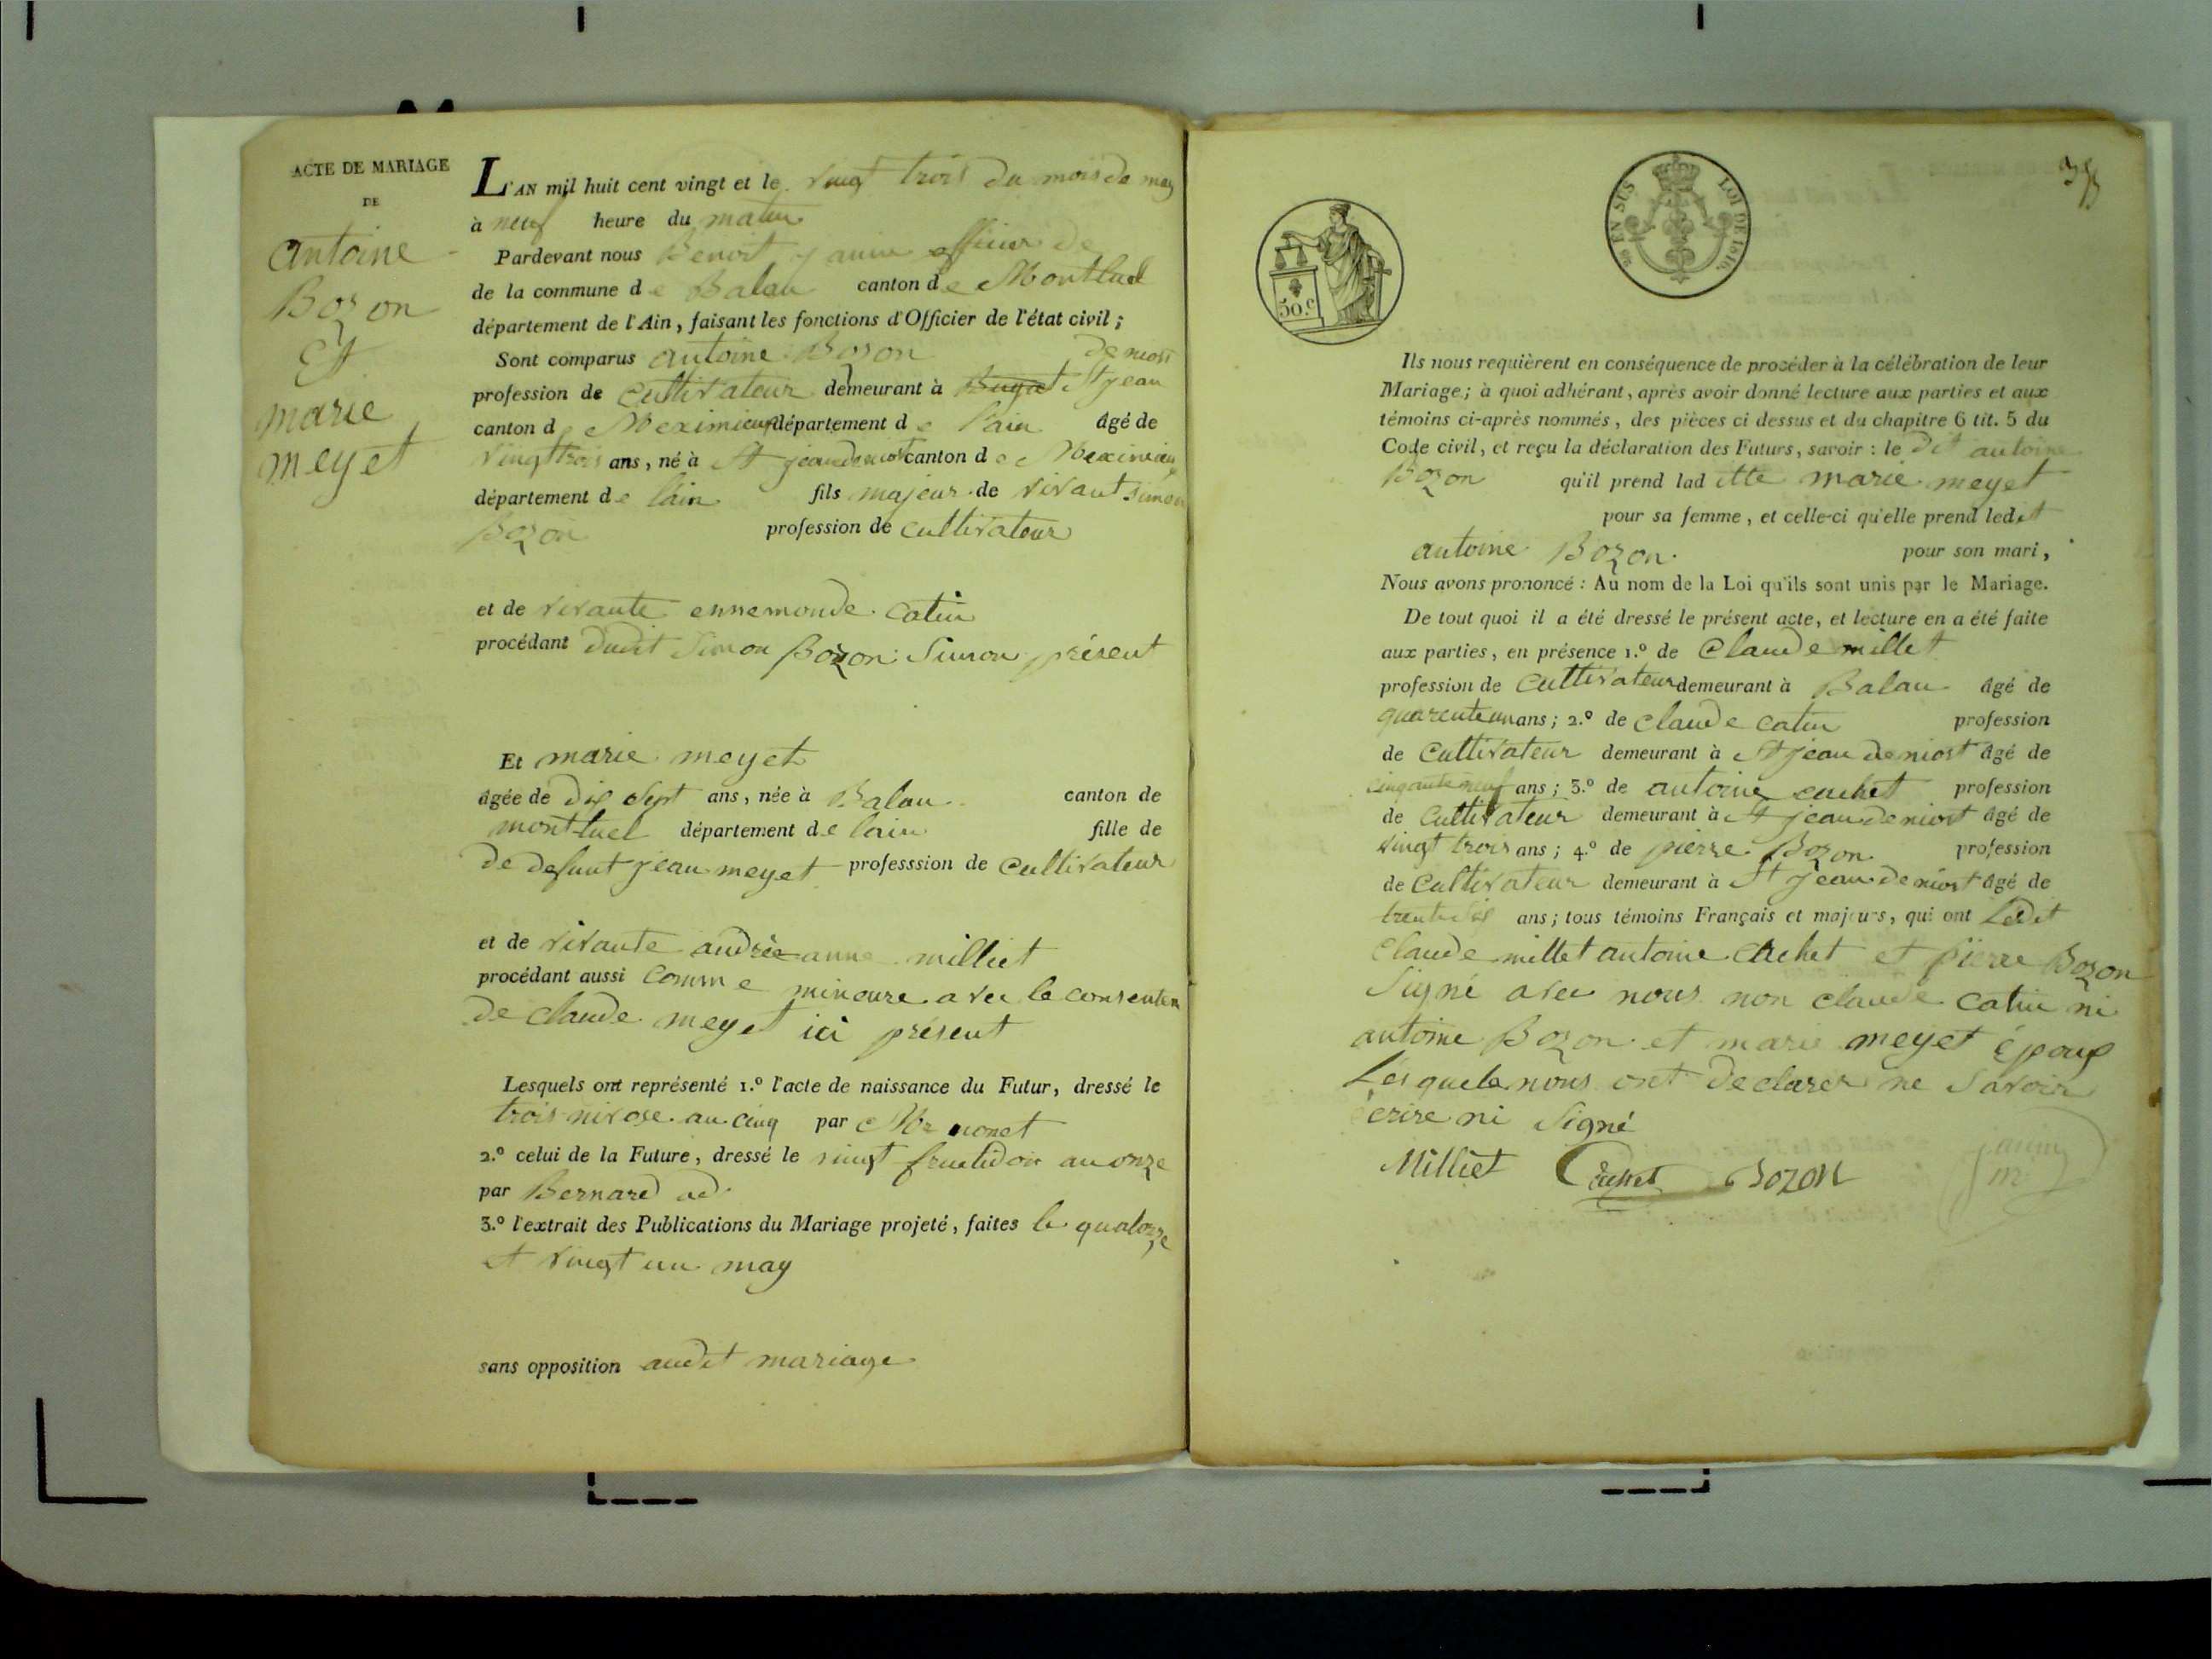 ACTE DE MARIAGE
DE
antoine
Bozon
Et
marie
meyet
L'AN mil huit cent vingt et le vingt trois du mois de may
à neuf heure du matin
Pardevant nous Benoit officier de
de la commune de Balan canton de Montluel
département de l'Ain, faisant les fonctions d'Officier de l'état civil;
Sont comparus antoine Bozon de niost
profession de cultivateur demeurant à St jean
canton de Meximieux département de l'ain âgé de
vingt trois ans, né à St jean de niost canton de Meximieux
département de lain fils majeur de vivant simon
Bozon profession de cultivateur
et de vivante ennemonde catin
procédant dudit Simon Bozon Simon présent
Et marie meyet
âgée de dix sept ans, née à Balan canton de
montluel département de lain fille de
de defunt jean meyet professsion de cultivateur
et de vivante andrée anne milliet
procédant aussi comme mineure avec le consentem
de claude meyet ici présent
Lesquels ont représenté 1.º l'acte de naissance du Futur, dressé le
trois nivose an cinq par Mr monet
2.º celui de la Future, dressé le vingt fructidor an onze
par Bernard ad
3.º l'extrait des Publications du Mariage projeté, faites le quatorze
et vingt un may
sans opposition audit mariage
50.c
EN SUS LOI DE 1816.
Ils nous requièrent en conséquence de procéder à la célébration de leur
Mariage; à quoi adhérant, après avoir donné lecture aux parties et aux
témoins ci-après nommés, des pièces ci dessus et du chapitre 6 tit. 5 du
Code civil, et reçu la déclaration des Futurs, savoir : le dit antoine
Bozon qu'il prend lad itte marie meyet
pour sa femme, et celle-ci qu'elle prend ledit
antoine Bozon pour son mari,
Nous avons prononcé : Au nom de la Loi qu'ils sont unis par le Mariage.
De tout quoi il a été dressé le présent acte, et lecture en a été faite
aux parties, en présence 1.º de Claude millet
profession de cultivateur demeurant à Balan âgé de
quarente un ans; 2.º de claude catin profession
de cultivateur demeurant à St jean de niost âgé de
cinqante neuf ans; 3.º de antoine cachet profession
de cultivateur demeurant à St jean de niost âgé de
vingt trois ans; 4.º de pierre Bozon profession
de cultivateur demeurant à St jean de niost âgé de
trente six ans; tous témoins Français et majeurs, qui ont Ledit
claude millet antoine cachet et pierre Bozon
Signé avec nous non claude catin ni
antoine Bozon et marie meyet époux
Lesquels nous ont declarer ne savoir
écrire ni signé
Milliet Cachet BOZON